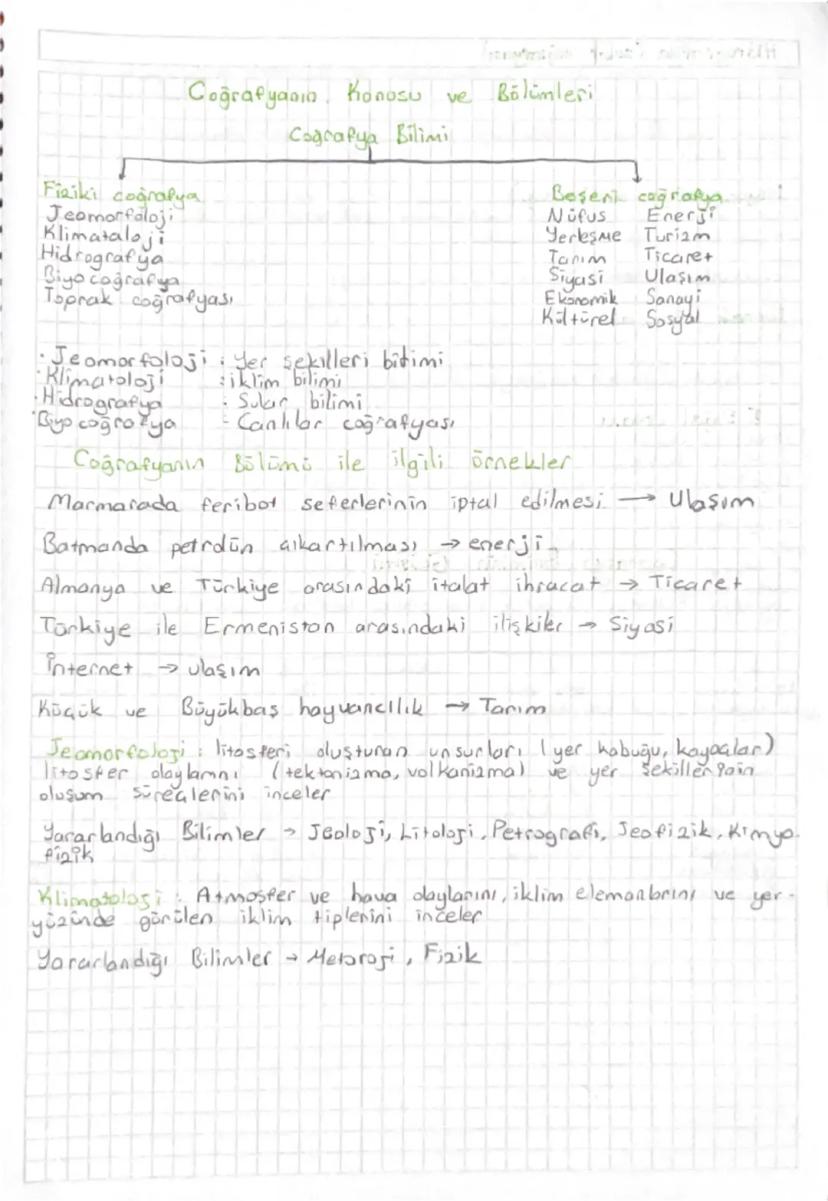 Coğrafyanın Konusu ve Bölümleri
Coğrafya Bilimi
Fiziki coğrafya
Jeomorfoloji
Klimataloji
Hidrografya
Biyocoğrafya
Toprak coğrafyası
Beşeri coğrafya
Nüfus Enerji
Yerleşme Turizm
Tarım Ticaret
Siyasi Ulaşım
Ekonomik Sanayi
Kültürel Sosyal
· Jeomorfoloji : Yer şekilleri bilimi
· Klimatoloji : iklim bilimi
· Hidrografya : Sular bilimi
· Biyocoğrafya : Canlılar coğrafyası
Coğrafyanın Bölümü ile ilgili örnekler
Marmarada feribot seferlerinin iptal edilmesi → Ulaşım
Batmanda petrolün çıkartılması → enerji
Almanya ve Türkiye arasındaki italat ihracat → Ticaret
Türkiye ile Ermenistan arasındaki ilişkiler → Siyasi
İnternet → ulaşım
Küçük ve Büyükbaş hayvancılık → Tarım
Jeomorfoloji : litosferi oluşturan unsurları (yer kabuğu, kayaçlar)
litosfer olaylarını (tektonizma, volkanizma) ve yer şekillerinin
oluşum süreçlerini inceler
Yararlandığı Bilimler → Jeoloji, Litoloji, Petrografi, Jeofizik, Kimya
fizik
Klimatoloji : Atmosfer ve hava olaylarını, iklim elemanlarını ve yer-
yüzünde görülen iklim tiplerini inceler
Yararlandığı Bilimler → Metoroji, Fizik